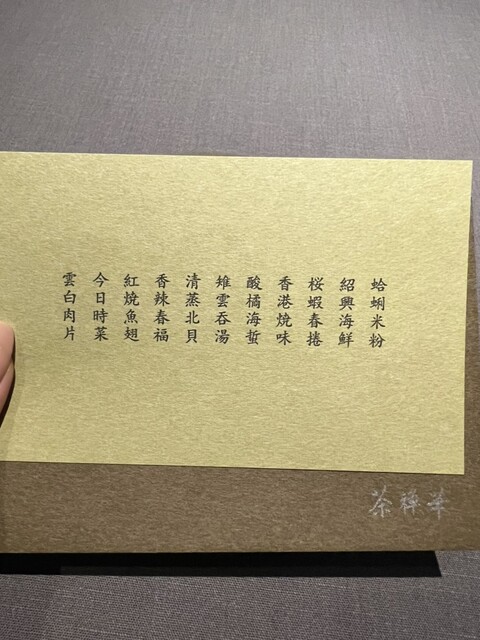 蛤蜊米粉
紹興海鮮
桜蝦春捲
香港焼味
酸橘海蜇
雉雲吞湯
清蒸北貝
香辣春福
紅焼魚翅
今日時菜
雲白肉片
茶禅華